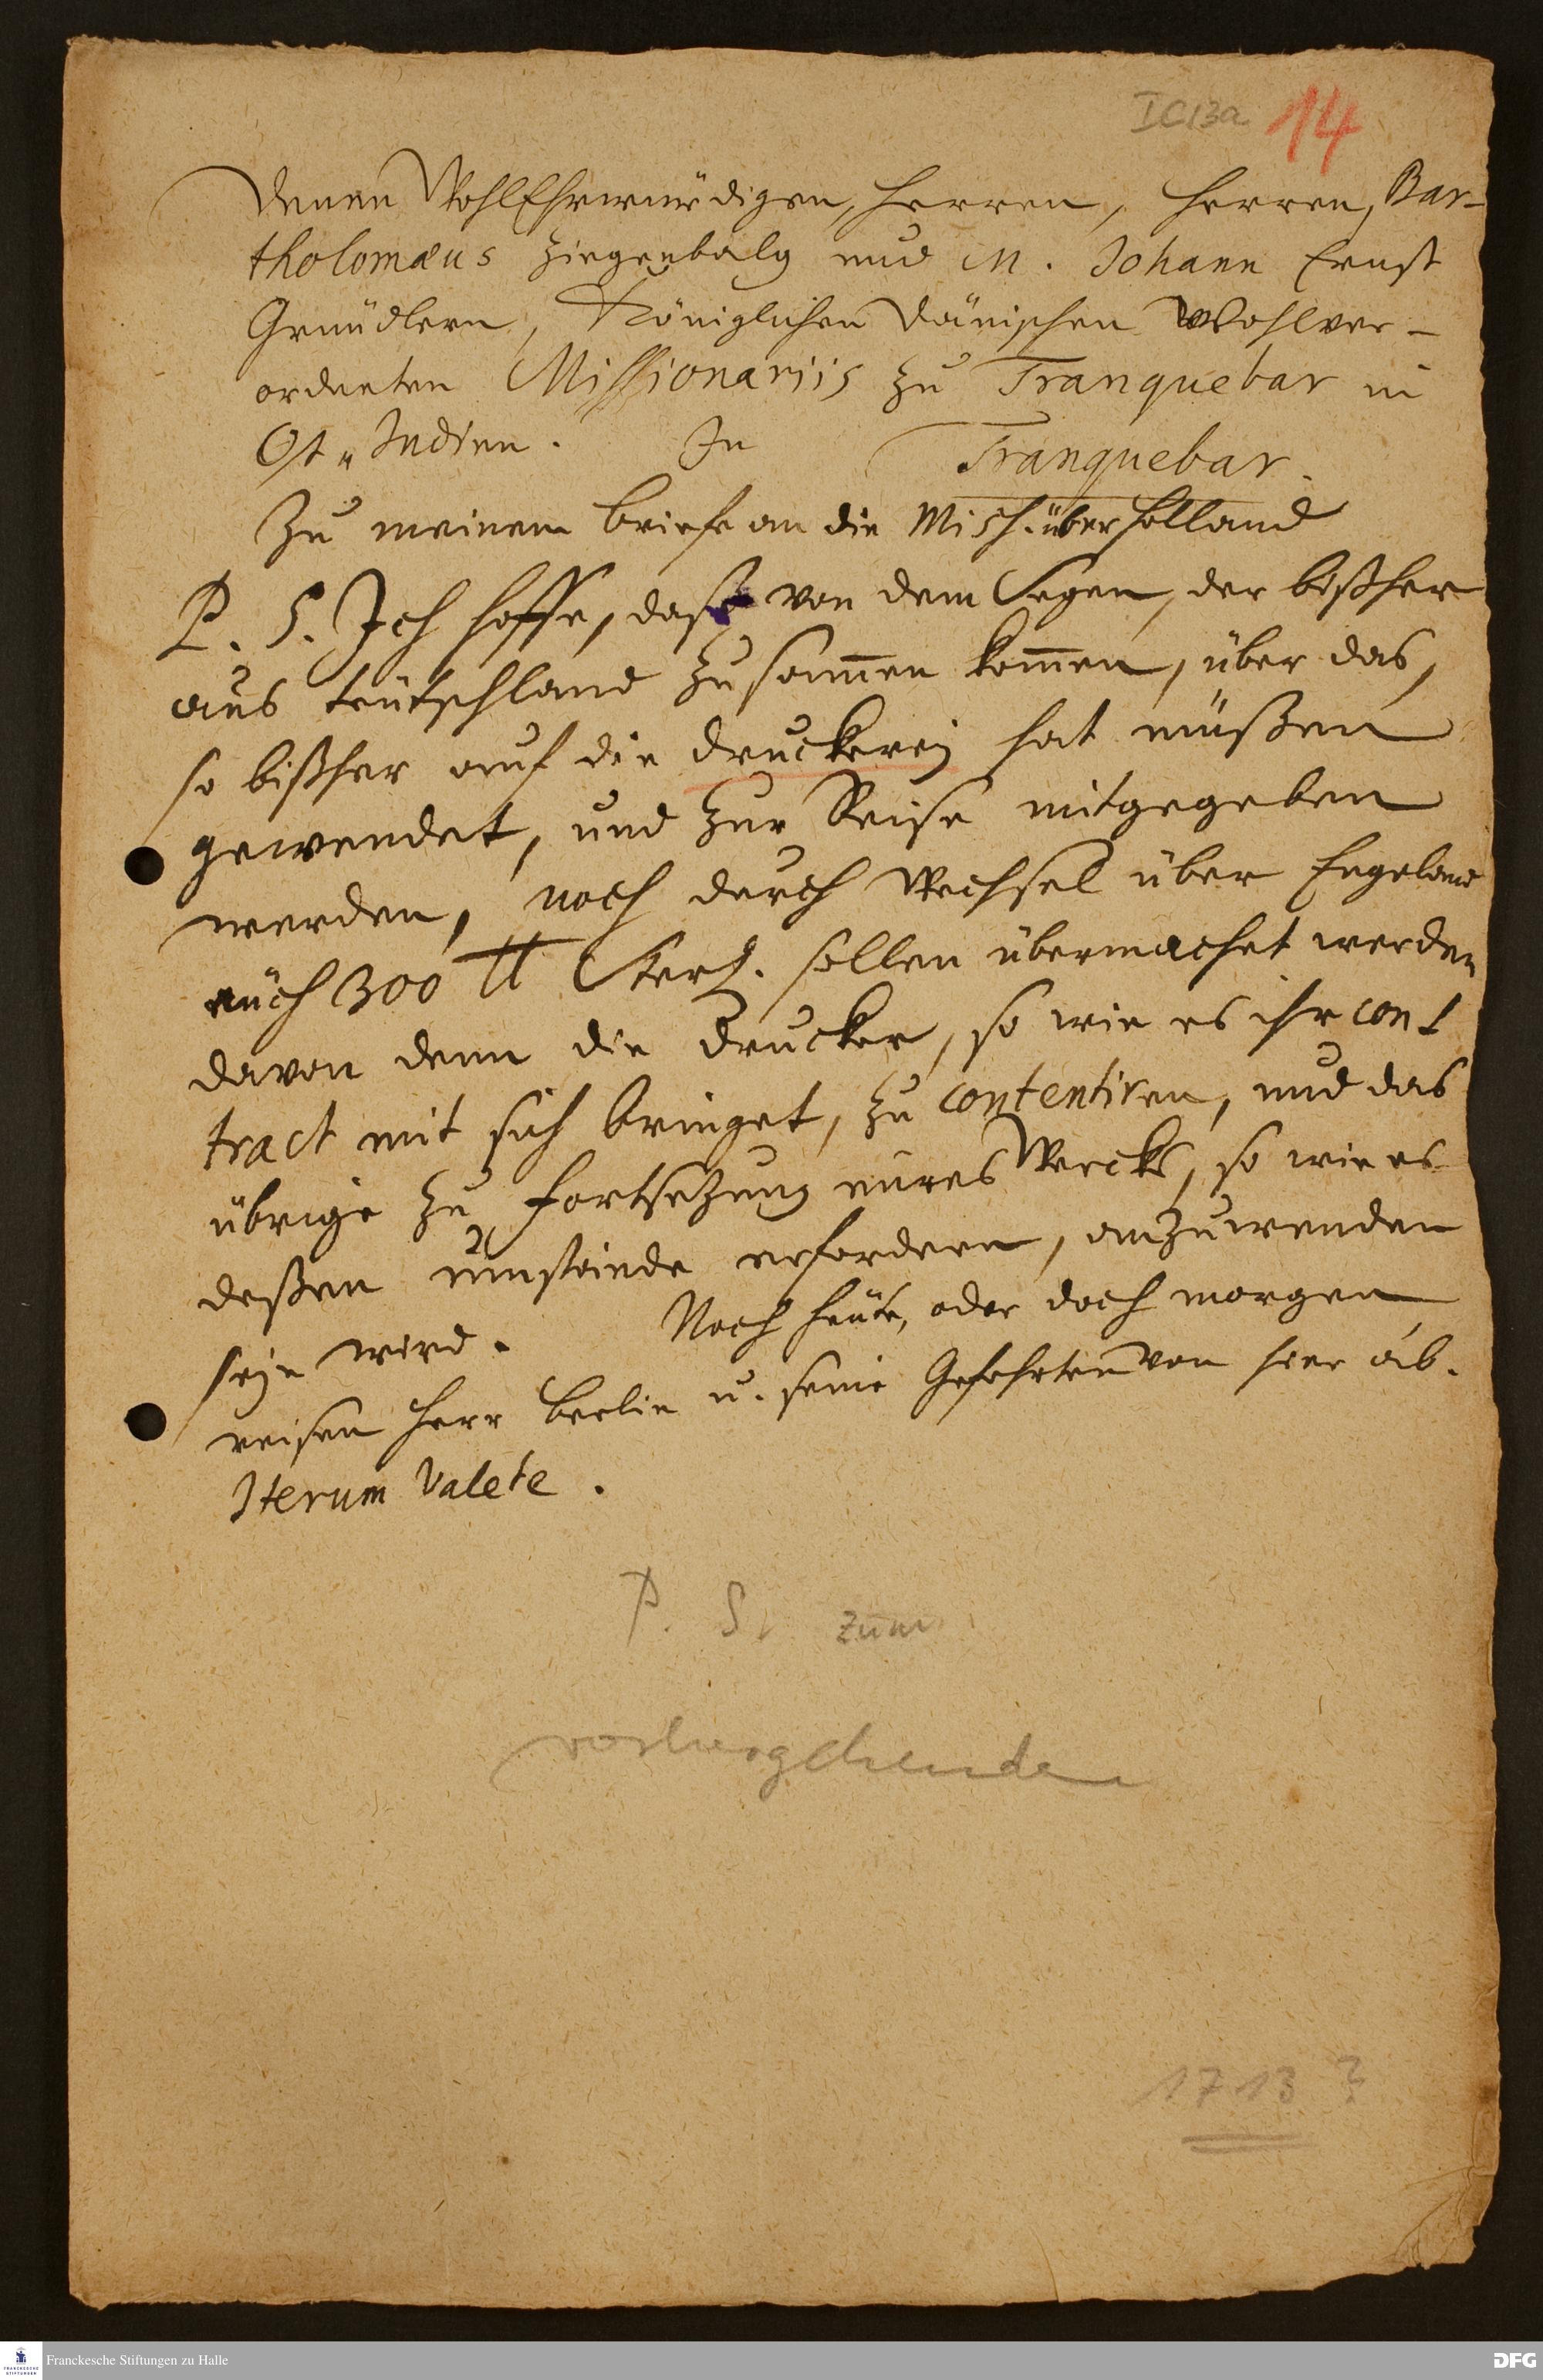 IC13a 14
Denen WohlEhrwürdigen, Herren, Herren, Bar-
tholomæus Ziegenbalg und M. Johann Ernst
Gründlern, Königlichen Dänischen Wohlver-
ordneten Missionariis zu Tranquebar in
Ost„Indien. In Tranquebar.
Zu meinem briefe an die Miss. über Holland
P. S. Ich hoffe, daß von dem Segen, der bißher
aus teutschland zusam̄en kom̄en, über das,
so bißher auf die druckerey hat müßen
gewendet, und zur Reise mitgegeben
werden, noch durch Wechsel über Engeland
euch 300 ℔ Sterl. sollen übermachet werden
davon denn die Drucker, so wie es ihr cont
tract mit sich bringet, zu contentiren, und das
übrige zu fortsetzung eures Wercks, so wie es
deßen umstände erfordern, anzuwenden
seyn wird. Noch heute, oder doch morgen
reisen Herr Berlin u. seine Gefehrten von hier ab.
Iterum Valete.
P. S. zum
vorhergehenden
1713?
Franckesche Stiftungen zu Halle
FRANCKESCHE STIFTUNGEN
DFG